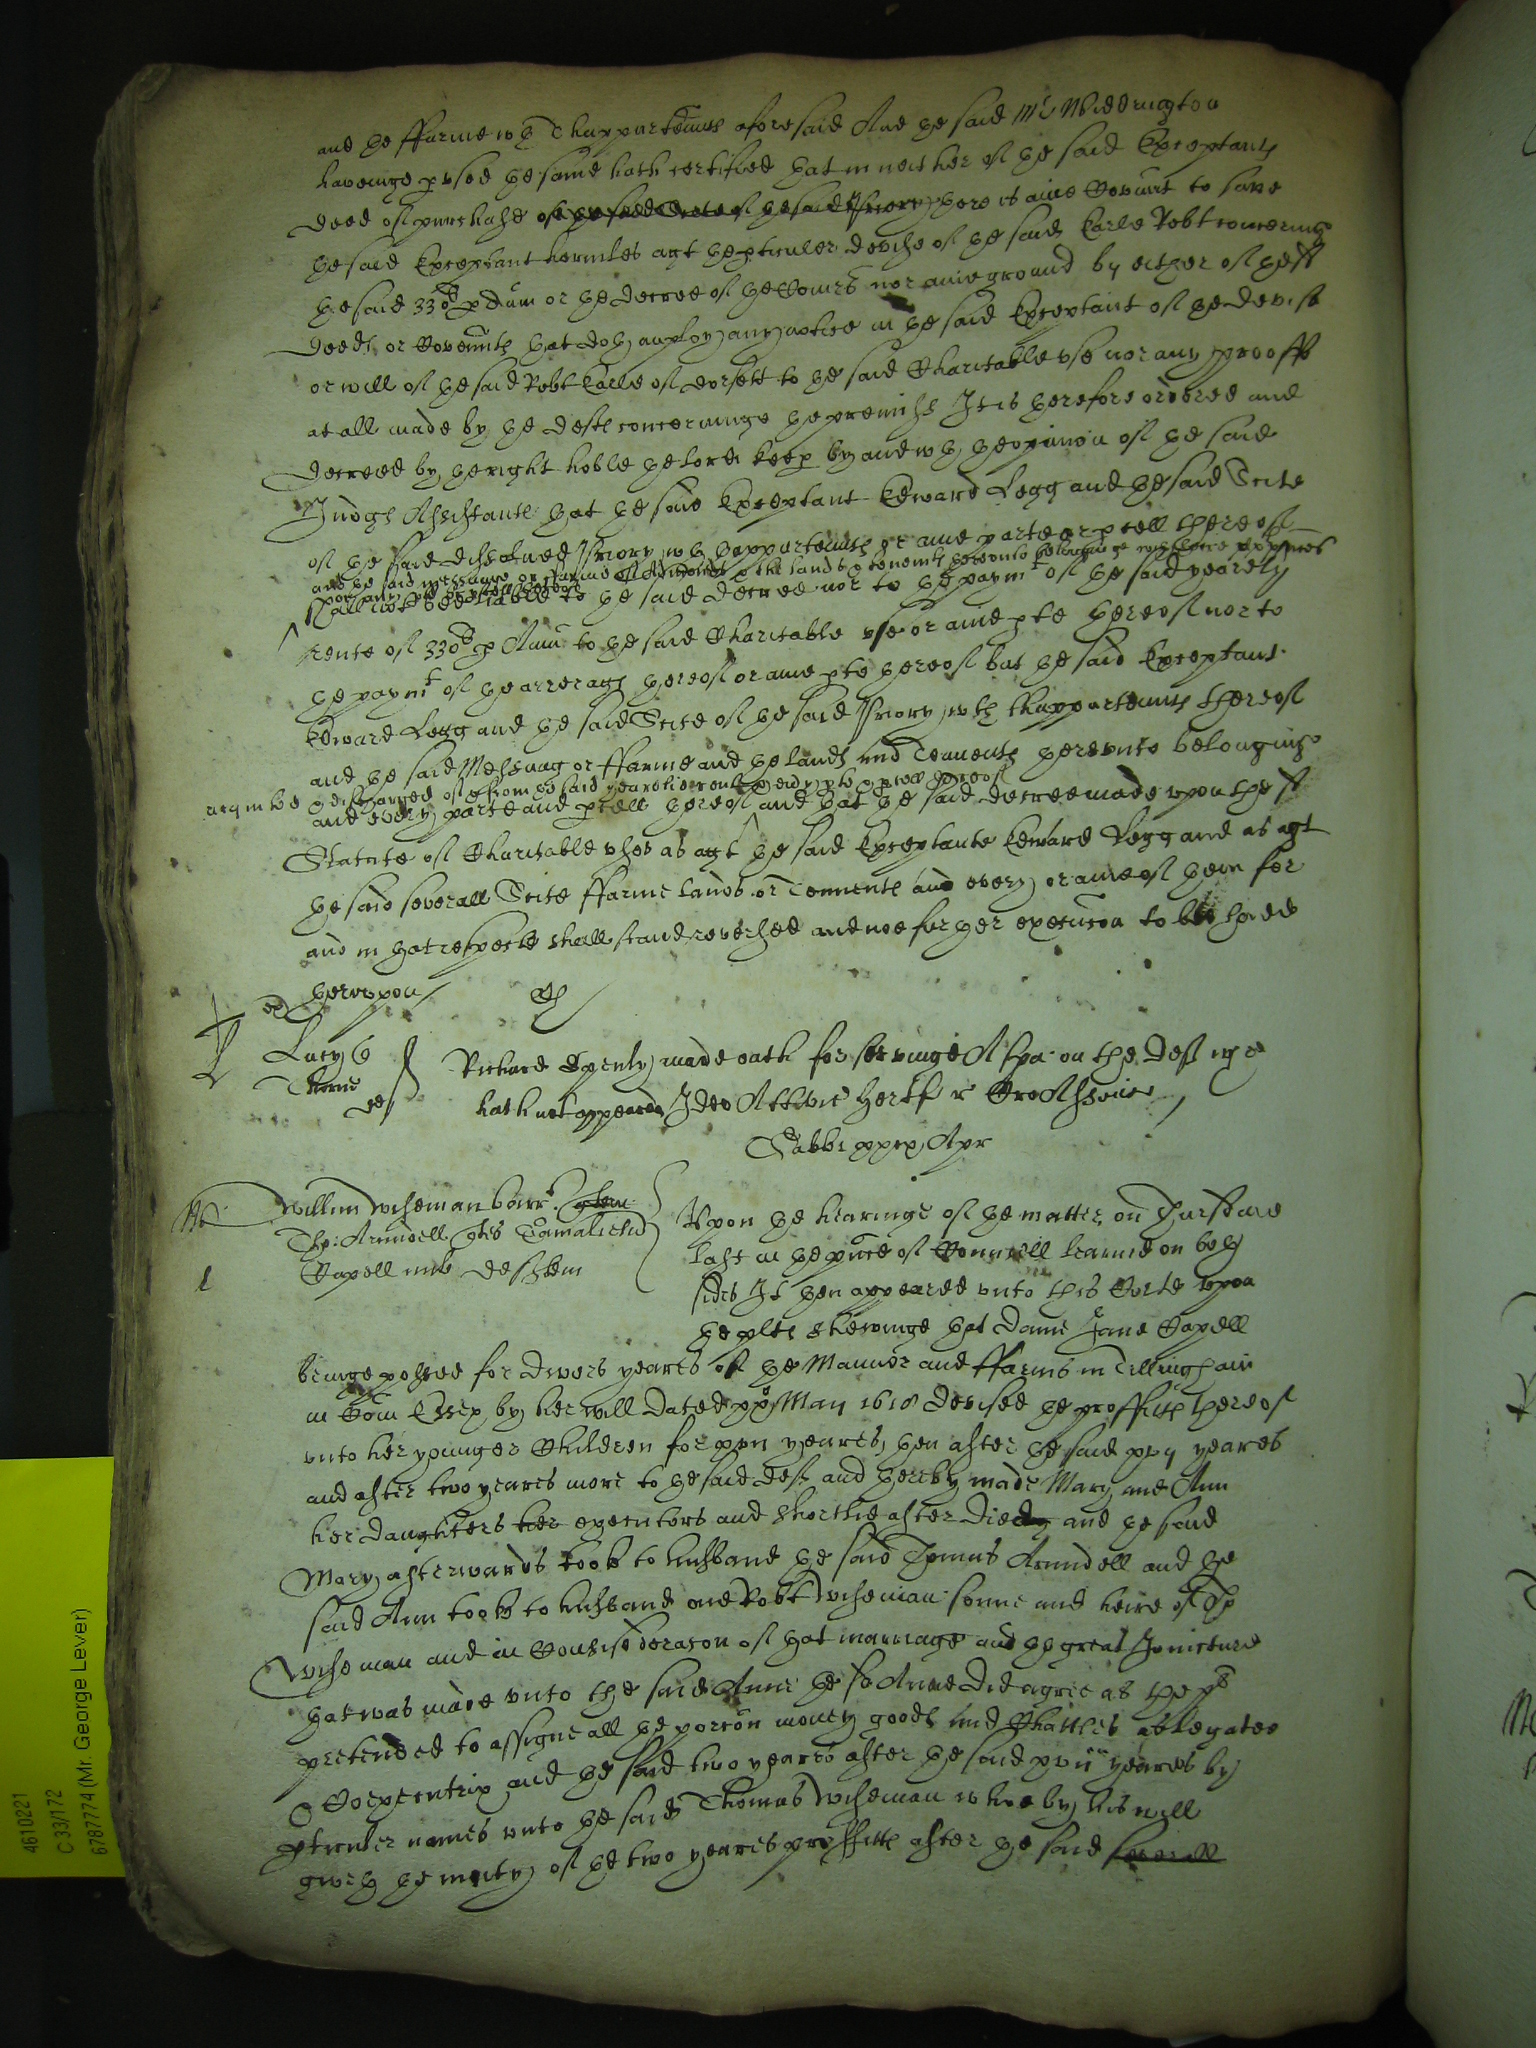 and the ffarme wth Thappurtenncs aforesaid And the said Mr Widdrington
haveinge pvsed the same hath certified that in neither of the said Exceptants
deed of purchase of the said Scite of the said Priory there is anie Covennt to save
the said Exceptant harmles agt the pticuler devise of the said Earle Robt concerninge
the said 330li p Annum or the decree of the Comrs nor anie ground by either of these
deeds or Covennts that doth imploy any notice in the said Exceptant of the devise
or will of the said Robt Earle of Dorsett to the said Charitable vse nor any prooffe
at all made by the defts concerninge the premisses It is therefore ordered and
decreed by the right hoble the lord keep by and wth the opinion of the said
Judges Assistants that the said Exceptant Edward Legg and the said Scite
of the said dissolued Priory wth thappurtenncs or anie parte or pcell thereof
and the said messuage or ffarme & the lands & tenemts therevnto belonginge
shall not bee liable to the said decree nor to the paymt of the said yearely
rente of 330li p Annu to the said Charitable vse or anie pte thereof nor to
the paymt of the arrerages thereof or anie pte thereof but the said Exceptant
Edward Legg and the said Scite of the said Priory wth thappurtenncs thereof
and the said Messuag or ffarme and the lands and Tenemts therevnto belonginge
acquited & discharged of & from the said yearelie rent & euery pte & pcell thereof
and every parte and pcell thereof and that the said decree made vpon the st
Statute of Charitable vses as agt the said Exceptante Edward Legg and as agt
the said severall Scite ffarme lands or Tenements and every or anie of them for
and in that respecte shall stand reversed and noe further execucon to bee hadd
therevpon
Lucy
Thorne
Richard Spenly made oath for servinge A spa on the deft whoe
hath not appeared Ideo Attach Hertf r Cro Assencon
Sabbi xxix Apr
Willim Wiseman barrt
Tho: Arundell Gamaliell
Capell mil defts
Vpon the hearinge of the matter on Thursdaie
last in the pnce of Councell learned on both
sides It then appeared vnto this Corte vpon
the plts shewinge that Dame Jane Capell
beinge possed for divers yeares of the Mannor and ffarms in Tillingham
in Com Essex by her will dated xxo May 1618 devised the proffitts thereof
vnto her younger Children for xvii yeares, then after the said xvij yeares
and after two yeares more to the said deft and thereby made Mary and Ann
her daughters her executors and shortlie after died and the said
Mary afterwards tooke to husband the said Thomas Arundell and the
said Ann tooke to husband one Robt Wiseman sonne and heire of Tho
Wiseman and in Consideracon of that marriage and the great Joincture
that was made vnto the said Anne the sd Anne did agree as the plts
pretended to assigne all the porcon money goods and Chattles as legatee
& Coexecutrix and the said two yeares after the said xvii yeares by
pticuler names vnto the said Thomas Wiseman whoe by his will
giveth the moity of the two yeares proffitts after the said severall
4610221
C33/172
6787774 (Mr. George Lever)